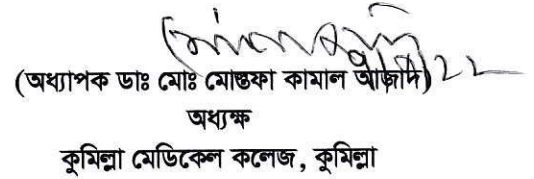 (অধ্যাপক ডাঃ মোঃ মোস্তফা কামাল আজাদ)
অধ্যক্ষ
কুমিল্লা মেডিকেল কলেজ, কুমিল্লা